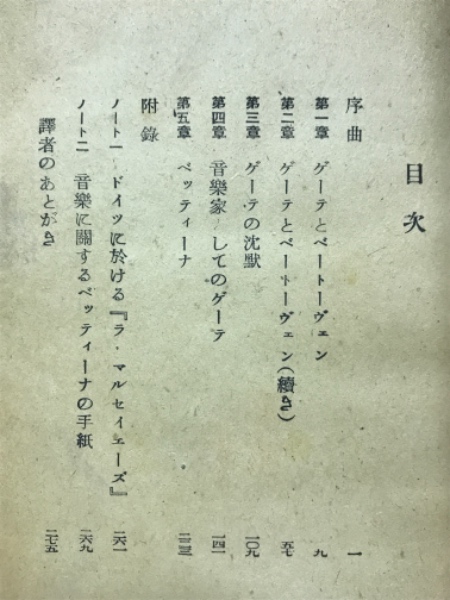 目次
序曲 一
第一章 ゲーテとベートーヴェン 九
第二章 ゲーテとベートーヴェン(續き) 五七
第三章 ゲーテの沈默 一〇九
第四章 音樂家 してのゲーテ 一四一
第五章 ベッティーナ 二二三
附錄
ノート一 ドイツに於ける『ラ・マルセイエーズ』 二六一
ノート二 音樂に關するベッティーナの手紙 二六九
譯者のあとがき 二七五